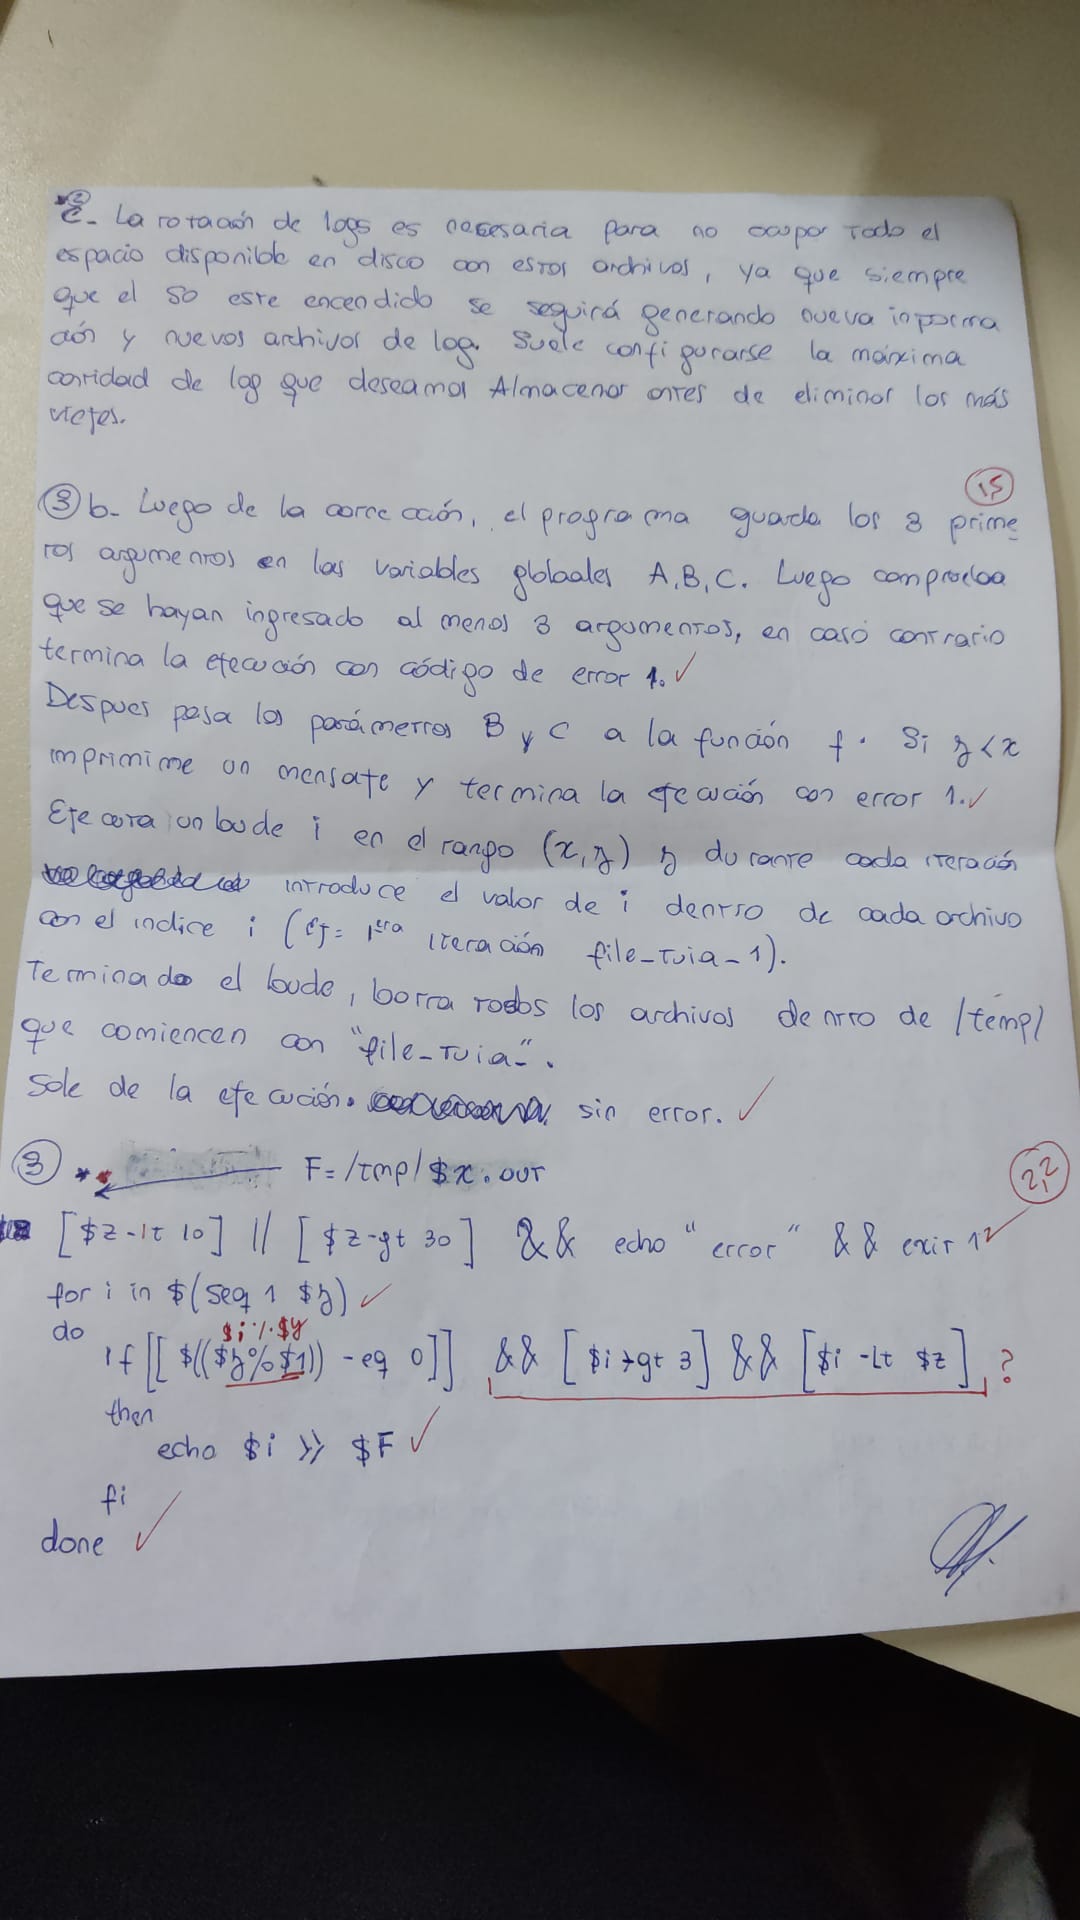 c- La rotación de logs es necesaria para no ocupar todo el
espacio disponible en disco con estos archivos, ya que siempre
que el SO este encendido se seguirá generando nueva informa
ción y nuevos archivos de log. Suele configurarse la máxima
cantidad de log que deseamos Almacenar antes de eliminar los más
viejos.
15
3 b- Luego de la corrección, el programa guarda los 3 prime
ros argumentos en las variables globales A,B,C. Luego comprueba
que se hayan ingresado al menos 3 argumentos, en caso contrario
termina la ejecución con código de error 1. ✓
Despues pasa los parámetros B y C a la función f. Si y<x
imprimime un mensaje y termina la ejecución con error 1. ✓
Ejecuta un bucle i en el rango (x,y) y durante cada iteración
introduce el valor de i dentro de cada archivo
con el indice i (ej= 1era iteración file_tuia_1).
Terminado el bucle, borra todos los archivos dentro de /temp/
que comiencen con "file_tuia_".
Sale de la ejecución. sin error. ✓
3 ** F=/tmp/$x.out
2,2
[$z -lt 10] || [$z -gt 30] && echo "error" && exit 1 ✓
for i in $(seq 1 $y) ✓
$i % $y
do
if [[ $(($y%$1)) -eq 0]] && [$i -gt 3] && [$i -Lt $z] ?
then
echo $i >> $F ✓
fi
done ✓